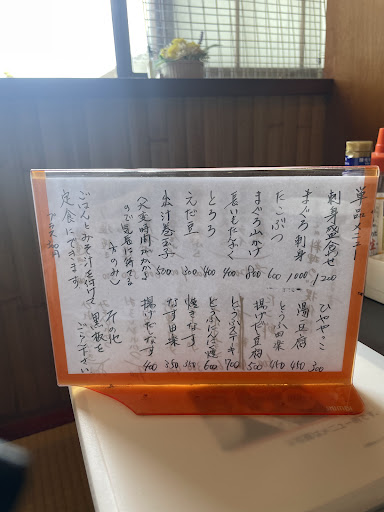 単品メニュー
刺身盛合わせ 1200
まぐろ刺身 1000
たこぶつ 600
まぐろ山かけ 800
長いもたんざく 400
とろろ 400
えだ豆 300
出汁巻玉子 500
(大変時間がかかる
ので気長に待てる
方のみ)
ごはんとみそ汁を付けて
定食にできます
プラス
ひややっこ 300
湯豆腐 450
とうふ田楽 450
揚げだし豆腐 500
とうふステーキ 700
600
焼きなす 350
なす田楽 350
揚げだしなす 400
その他
黒板を
ご下さい